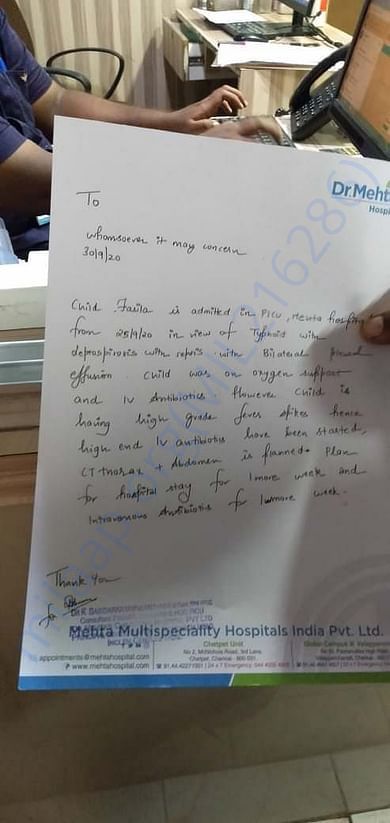 Dr.Mehta
Hospi
To
whomsoever it may concern
30/9/20
Child Fazila is admitted in PICU, Mehta hospital
from 25/9/20 in view of Typhoid with
leptospirosis with sepsis with Bilateral pleural
effusion. Child was on oxygen support
and IV Antibiotics. However child is
having high grade fever spikes hence
high end IV antibiotics have been started,
CT thorax + Abdomen is planned. Plan
for hospital stay for 1 more week and
Intravenous Antibiotics for 1 more week.
Thank You
for
Mehta Multispeciality Hospitals India Pvt. Ltd.
Chetpet Unit
No 2, McNichols Road, 3rd Lane,
Chetpet, Chennai - 600 031.
appointments@mehtahospital.com
www.mehtahospital.com